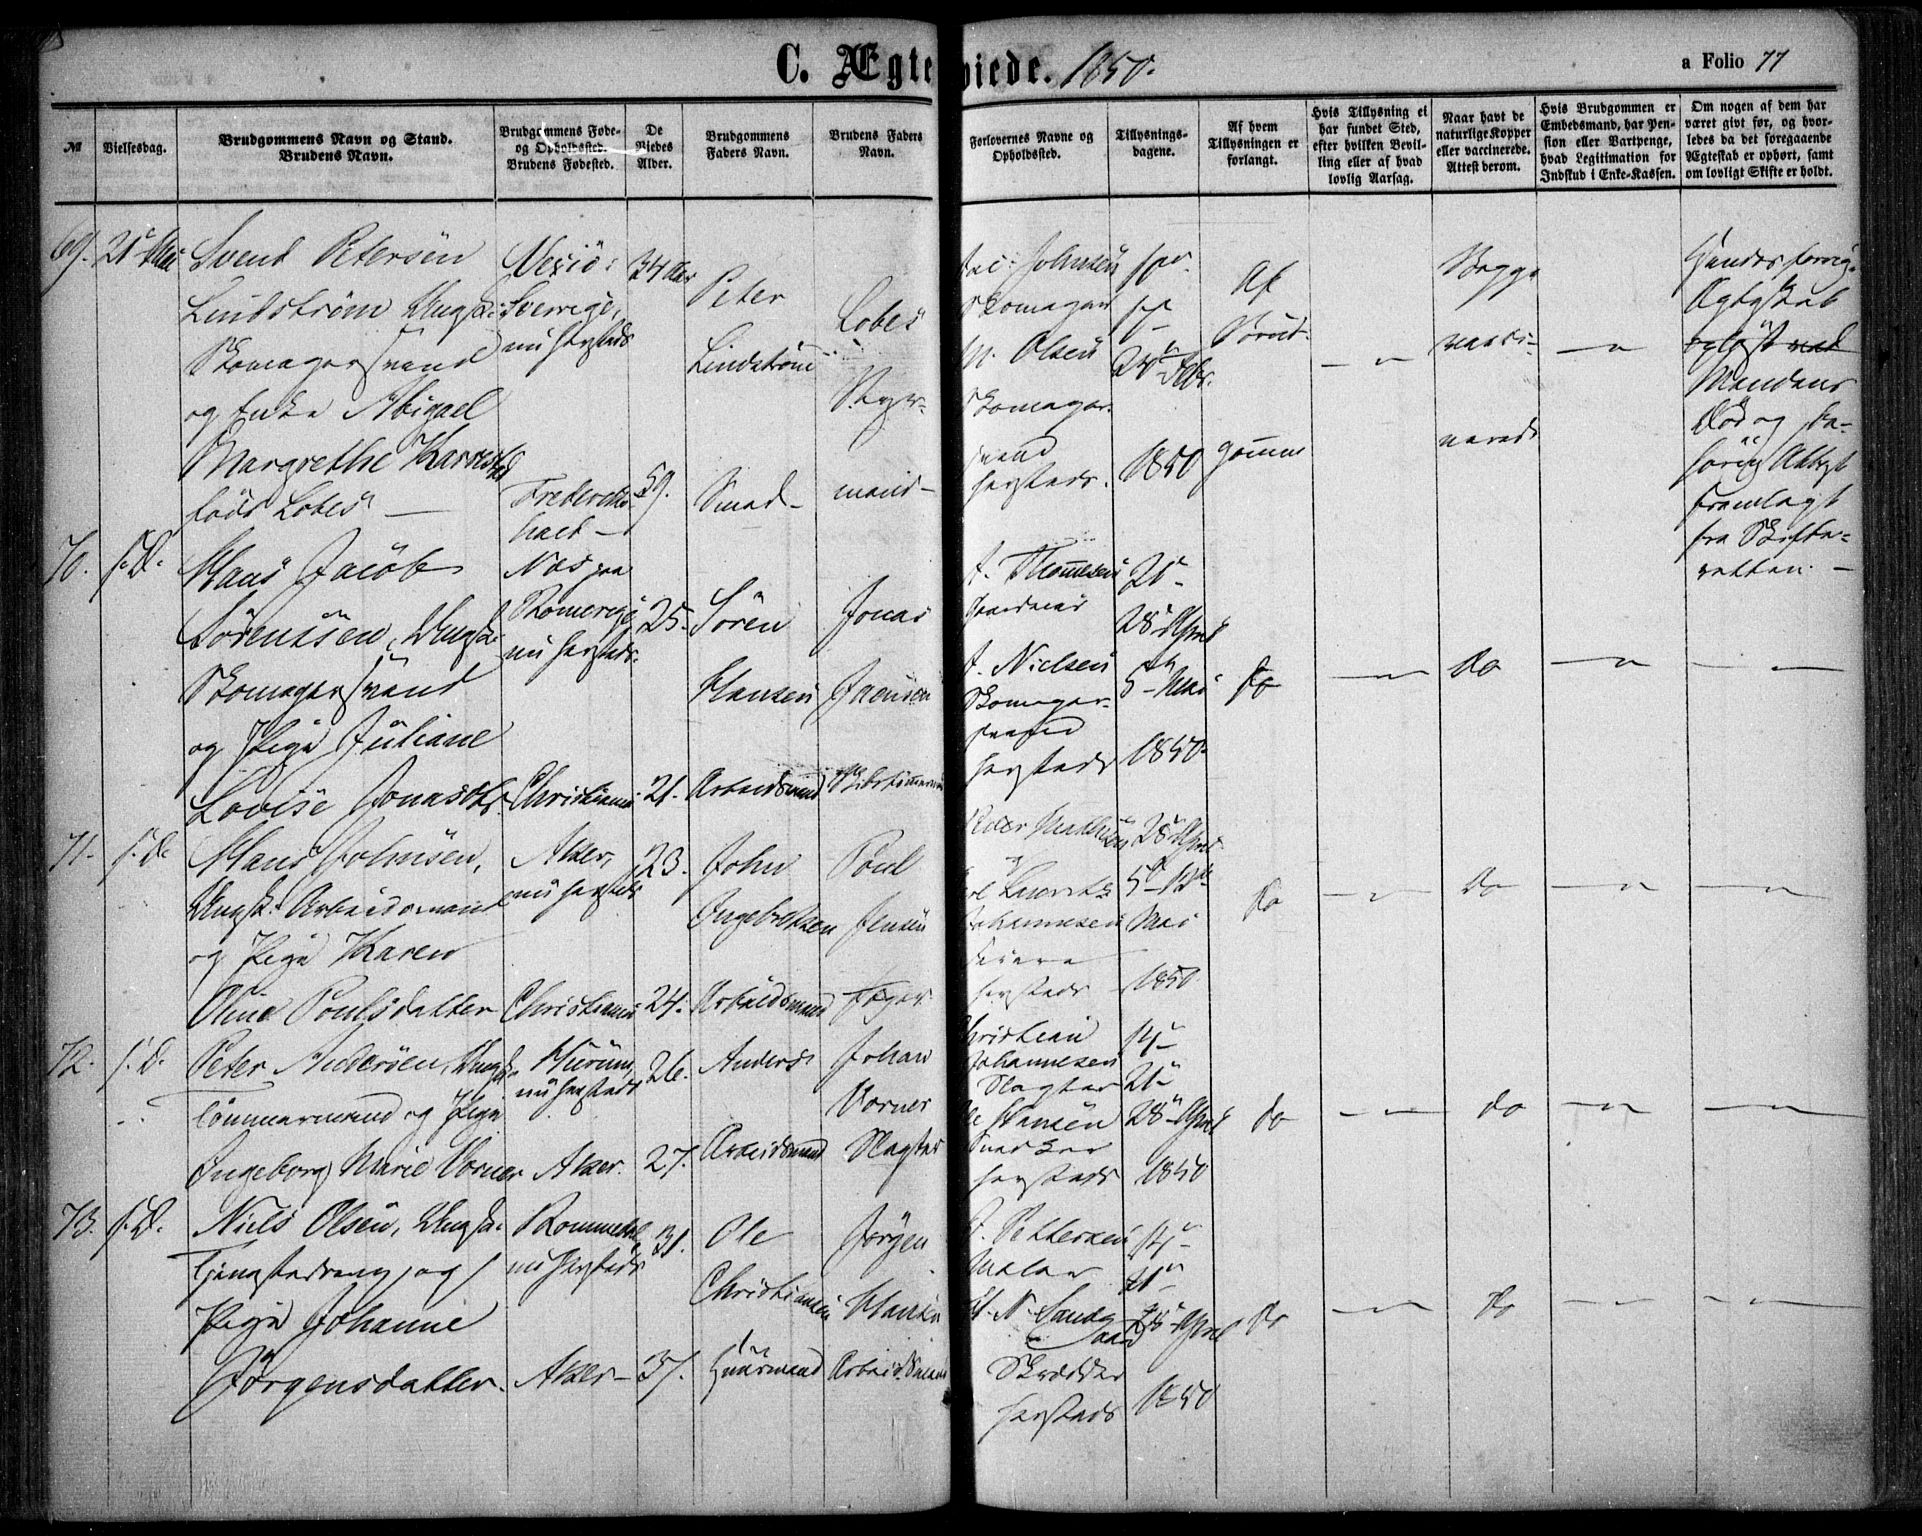 C. Ægteviede. 1850.
a Folio 77
№
Vielsesdag.
Brudgommens Navn og Stand.
Brudens Navn.
Brudgommens Føde-
og Opholdssted.
Brudens Fødested.
De
Viedes
Alder.
Brudgommens
Faders Navn.
Brudens Faders
Navn.
Forlovernes Navne og
Opholdssted.
Tillysnings-
dagene.
Af hvem
Tillysningen er
forlangt.
Hvis Tillysning ei
har fundet Sted,
efter hvilken Bevil-
ling eller af hvad
lovlig Aarsag.
Naar havt de
naturlige Kopper
eller vaccinerede.
Attest derom.
Hvis Brudgommen er
Embedsmand, har Pen-
sion eller Vartpenge,
hvad Legitimation for
Indskud i Enke-Kassen.
Om nogen af dem har
været givt før, og hvor-
ledes da det foregaaende
Ægteskab er ophørt, samt
om lovligt Skifte er holdt.
69. 21 Mai
Svend Petersen
Lindstrøm Ungk.
Skomagersvend
og Enke Abigael
Margrethe
født Lobes
Sverrige,
nu hersteds
34 Aar
59.
Peter
Lindstrøm
Smed
Lobes
Styr-
mand
Johnsen
Skomager
M. Olsen
Skomager-
svend
hersteds.
24 Febr.
1850
Af
Brud-
gommen
Begge
vacci-
nerede
Hendes forrige
Ægteskab
opløst ved
Mandens
Død og
Attest
fremlagt
fra Skifte-
retten.
70. s. D.
Hans Jacob
Sørenssen, Ungk.
Skomagersvend
og Pige Juliane
Lovise Jonasdtr.
Næs paa
Romerige
nu hersteds.
Christiania
25.
21.
Søren
Hansen
Arbeidsmand
Jonas
Jensen
A. Thomesen
A. Nielsen
Skomager-
svend
hersteds
21
28 April
5 Mai
1850.
do
do
71. s. D.
Hans Johnsen,
Ungk. Arbeidsmand
og Pige Karen
Oline Poulsdatter
Aker,
nu hersteds
Christiania
23.
24.
John
Ingebretsen
Arbeidsmand
Poul
Jensen
Peder Mathisen
Johannesen
hersteds
28 April
5 12
Mai
1850
do
do
72. s. D.
Peter Andersen, Ungk.
Tømmermand og Pige
Ingeborg Marie Vorner
Hurum,
nu hersteds
Aker.
26.
27.
Anders
Arbeidsmand
Johan
Vorner
Slagter
Christian
Johannesen
Slagter
Ole Hansen
Snedker
hersteds
14
21
28 April
1850
do
do
73. s. D.
Niels Olsen, Ungk.
Tjenestedreng og
Pige Johanne
Jørgensdatter.
Rommedal
nu hersteds
Aker
31.
37.
Ole
Christiansen
Huusmand
Jørgen
Hansen
Arbeidsmand
Pettersen
Maler
Skrædder
hersteds
14
21
28 April
1850
do
do